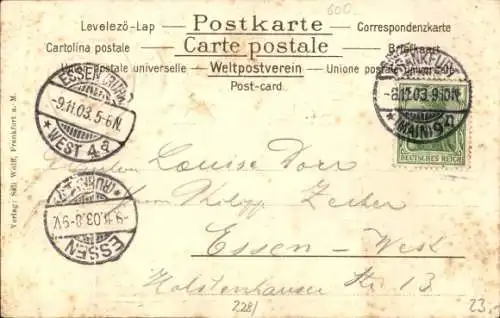 600.-
Levelező-Lap — Postkarte — Correspondenzkarte
Cartolina postale — Carte postale — Briefkaart
Union postale universelle — Weltpostverein — Unione postale universale
Post-card
ESSEN (RUHR)
-9.11.03.5-6N.
* WEST 4a
FRANKFURT
-8.11.03.9-10N.
* (MAIN) 9
DEUTSCHES REICH
Louise Dorr
Philipp Zecher
Essen - West
Holstenhauser Str. 13
(RUHR)
-9.11.03.8-9V.
ESSEN
Verlag: Sali Wolff, Frankfurt a. M.
228/
23.-